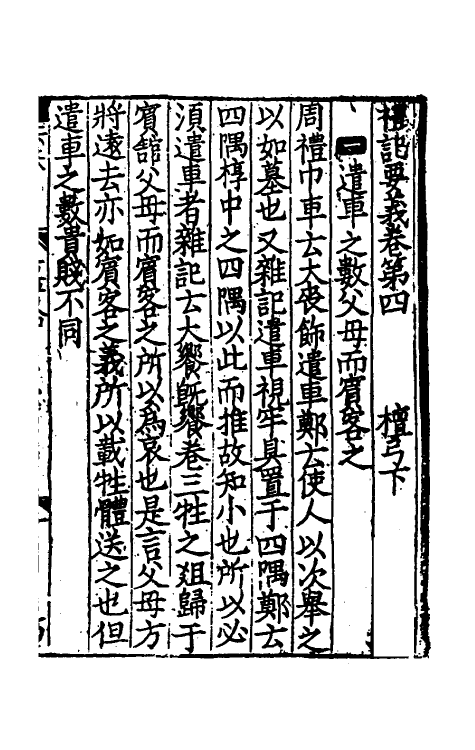 禮記要義卷第四　檀弓下
一遣車之數父母而賓客之
周禮巾車云大喪飾遣車鄭云使人以次舉之
以如墓也又雜記遣車視牢具置于四隅鄭云
四隅椁中之四隅以此而推故知小也所以必
須遣車者雜記云大饗旣饗卷三牲之俎歸于
賓舘父母而賓客之所以為哀也是言父母方
將遠去亦如賓客之義所以載牲體送之也但
遣車之數貴賤不同